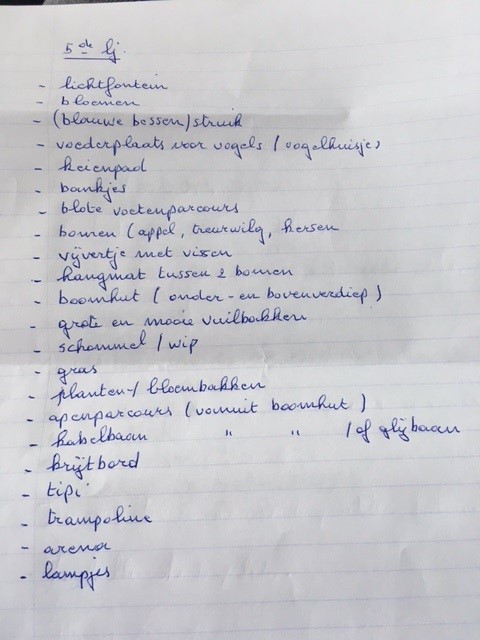 5de lj
- lichtfontein
- bloemen
- (blauwe bessen) struik
- voederplaats voor vogels / vogelhuisjes
- keienpad
- bankjes
- blote voetenparcours
- bomen (appel, treurwilg, kersen
- vijvertje met vissen
- hangmat tussen 2 bomen
- boomhut (onder- en bovenverdiep)
- grote en mooie vuilbakken
- schommel / wip
- gras
- planten-/ bloembakken
- apenparcours (vanuit boomhut)
- kabelbaan " " / of glijbaan
- krijtbord
- tipi
- trampoline
- arena
- lampjes